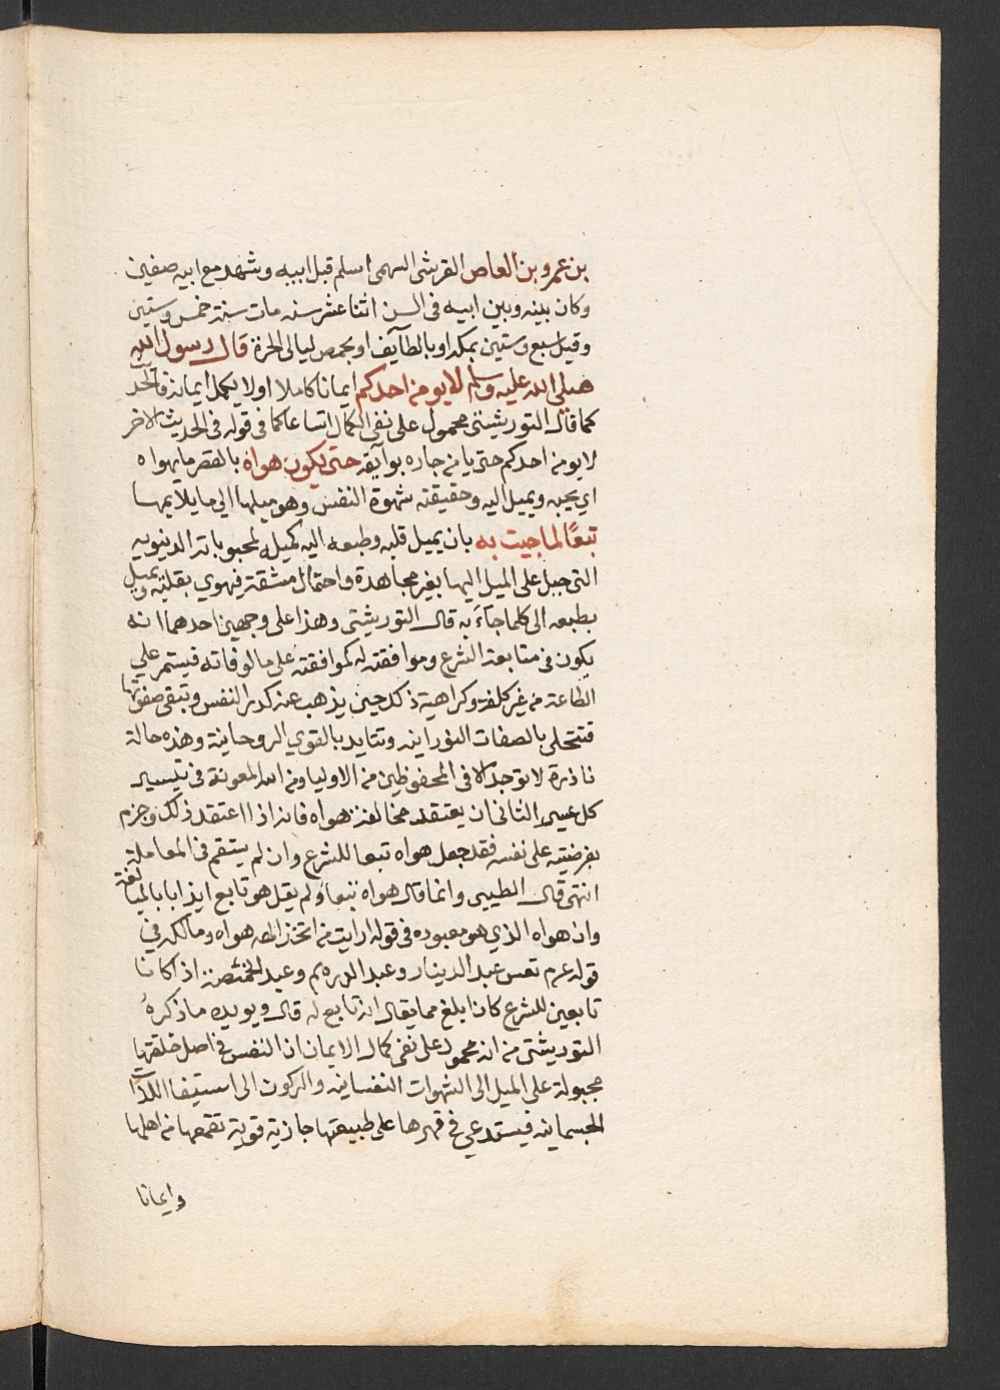 بن عمرو بن العاص القرشى السهمى اسلم قبل ابيه وشهد مع ابيه صفين
وكان بينه وبين ابيه فى السن اثنا عشر سنه مات سنة خمس وستين
وقيل سبع وستين بمكه او بالطآيف او بحمص ليالى الحرة قال رسول الله
صلى الله عليه وسلم لا يومن احدكم ايمانا كاملا او لا يكمل ايمانه
كما قال التوربشتى محمول على نفى الكمال اتساعا كما فى قوله فى الحديث الاخر
لا يومن احدكم حتى يا من جاره بوآيقه حتى يكون هواه بالقصر ما يهواه
اي يحبه ويميل اليه وحقيقته شهوة النفس وهو ميلها الى ما يلايمها
تبعًا لما جيت به بان يميل قلبه وطبعه اليه كميله لمحبوباته الدنيويه
التى جبل على الميل اليها بغير مجاهدة واحتمال مشقة فيهوي بقلبه ويميل
بطبعه الى كلما جآء به قال التوربشتى وهذا على وجهين احدهما انه
يكون فى متابعة الشرع وموافقته له كموافقته على مالوفاته فيستمر علي
الطاعة من غير كلفة وكراهية ذلك حين يذهب عنه كدر النفس وتبقى صفوتها
فتتحلى بالصفات النورانيه وتتايد بالقوي الروحانية وهذه حالة
نادرة لا توجد الا فى المحفوظين من الاوليا ومن الله المعونة فى تيسير
كل عسير الثانى ان يعتقد مخالفة هواه فانه اذا اعتقد ذلك وجزم
بفرضيته على نفسه فقد جعل هواه تبعا للشرع وان لم يستقم فى المعاملة
انتهى قال الطيبى وانما قال هواه تبعا ولم يقل هو تابع ايذانا بالمبالغة
وان هواه الذي هو معبوده فى قوله ارايت من اتخذ الهه هواه ومالكه في
قوله عرم تعس عبد الدينار وعبد الدرهم وعبد الخميصة اذا كانا
تابعين للشرع كان ابلغ مما يقال انه تابع له قال ويويده ما ذكرهُ
التوربشتى من انه محمود على نفى كمال الايمان ان النفس فى اصل خلقتها
مجبولة على الميل الى الشهوات النفسانيه والركون الى استيفا اللذات
الجسمانيه فيستدعي فى قهرها على طبيعتها جاذبة قوية تقمعها من اهلها
وايمانا